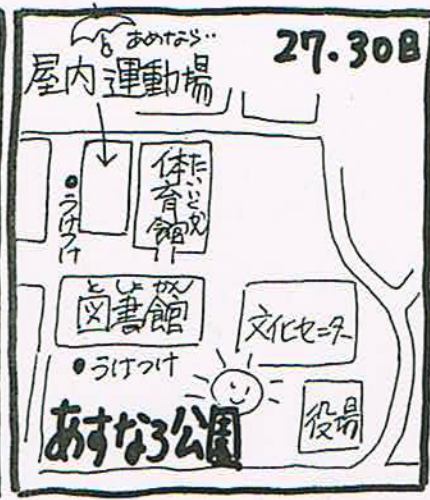 あめなら‥
27.30日
屋内運動場
体育館
たいいくかん
●うけつけ
としょかん
図書館
文化センター
●うけつけ
あすなろ公園
役場